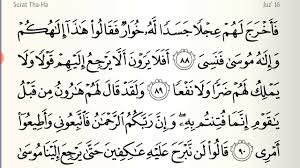 Surat Tha-Ha
Juz' 16
فَأَخْرَجَ لَهُمْ عِجْلًا جَسَدًا لَّهُۥ خُوَارٌ فَقَالُوا۟ هَٰذَآ إِلَٰهُكُمْ
وَإِلَٰهُ مُوسَىٰ فَنَسِىَ ٨٨ أَفَلَا يَرَوْنَ أَلَّا يَرْجِعُ إِلَيْهِمْ قَوْلًا وَلَا
يَمْلِكُ لَهُمْ ضَرًّا وَلَا نَفْعًا ٨٩ وَلَقَدْ قَالَ لَهُمْ هَٰرُونُ مِن قَبْلُ
يَٰقَوْمِ إِنَّمَا فُتِنتُم بِهِۦ وَإِنَّ رَبَّكُمُ ٱلرَّحْمَٰنُ فَٱتَّبِعُونِى وَأَطِيعُوٓا۟
أَمْرِى ٩٠ قَالُوا۟ لَن نَّبْرَحَ عَلَيْهِ عَٰكِفِينَ حَتَّىٰ يَرْجِعَ إِلَيْنَا مُوسَىٰ